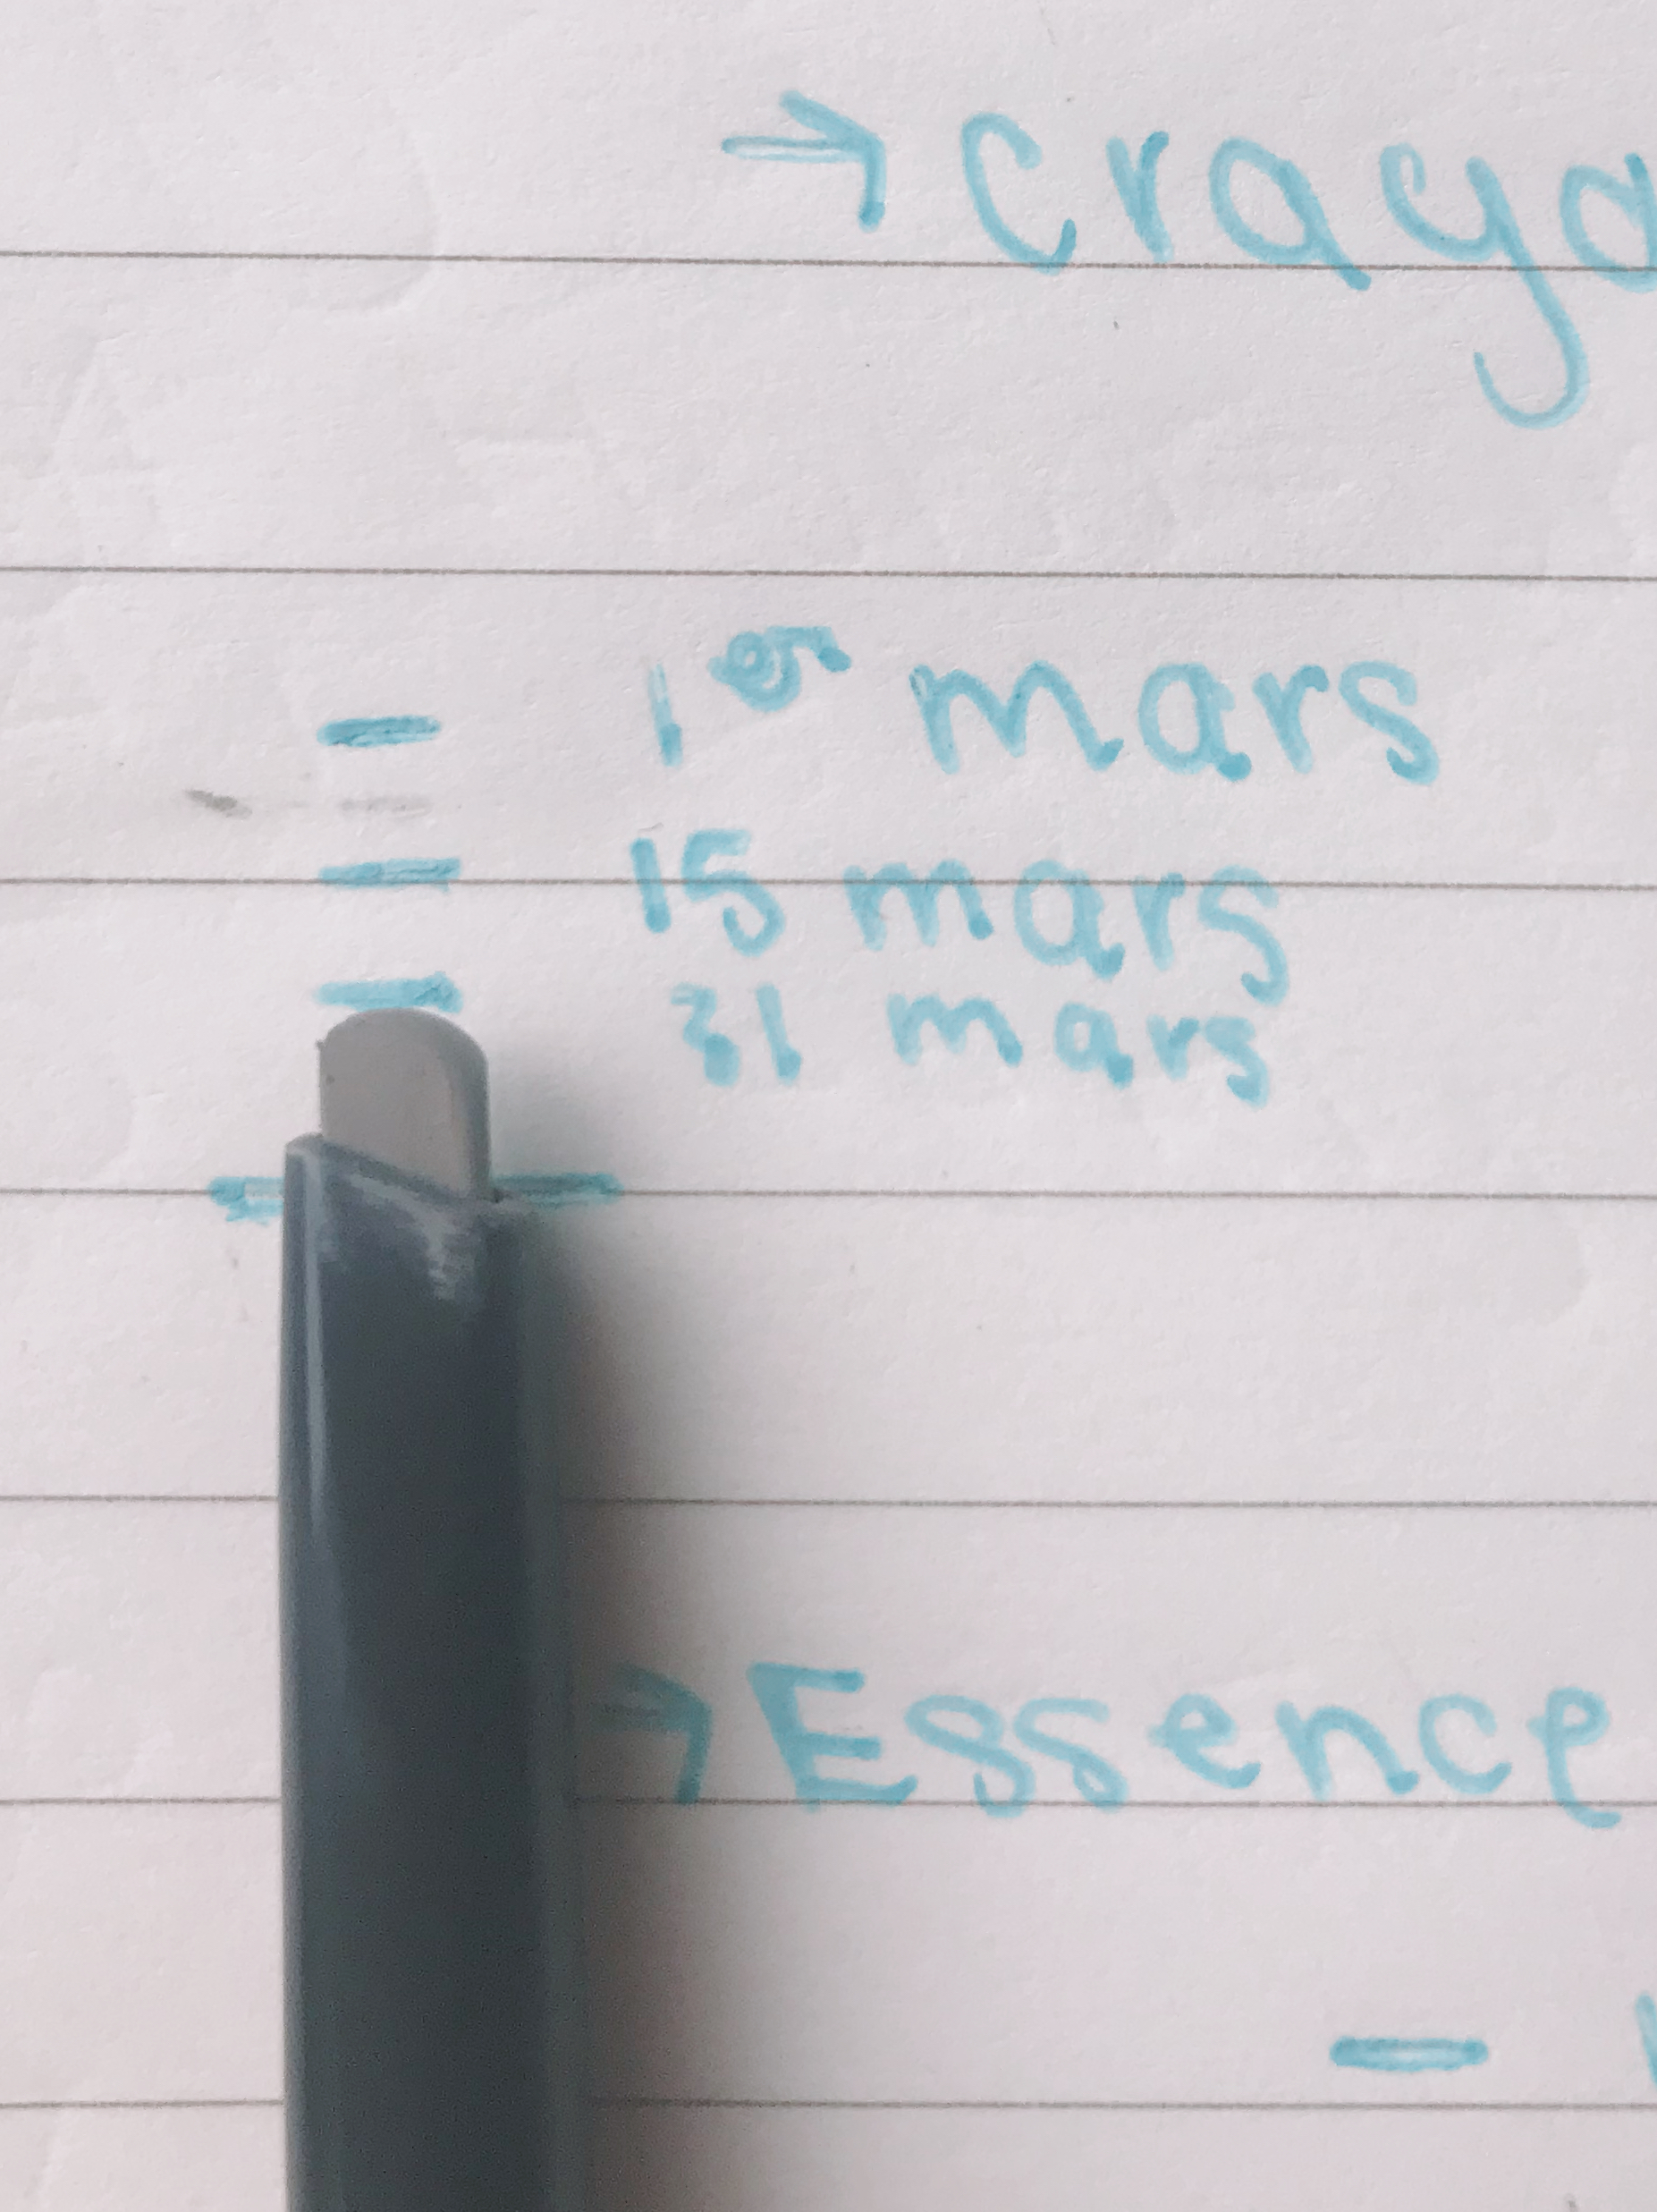 → crayo
- 1er mars
- 15 mars
- 31 mars
→ Essence
-